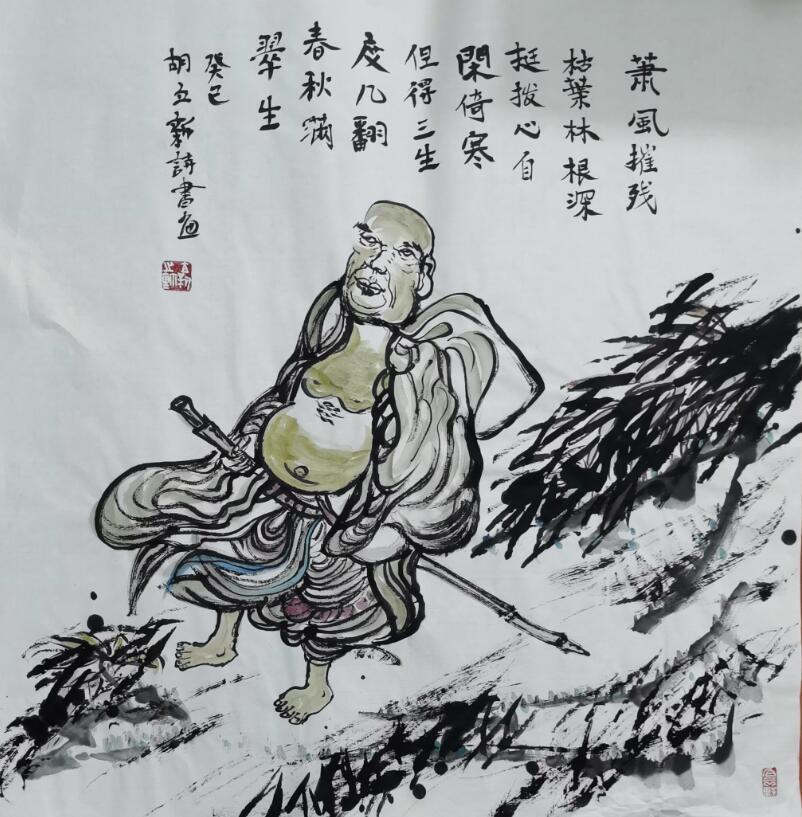 萧風摧残
枯葉林根深
挺拔心自
閑倚寒
但得三生
度几翻
春秋滿
翠生
癸巳
胡立新詩書画